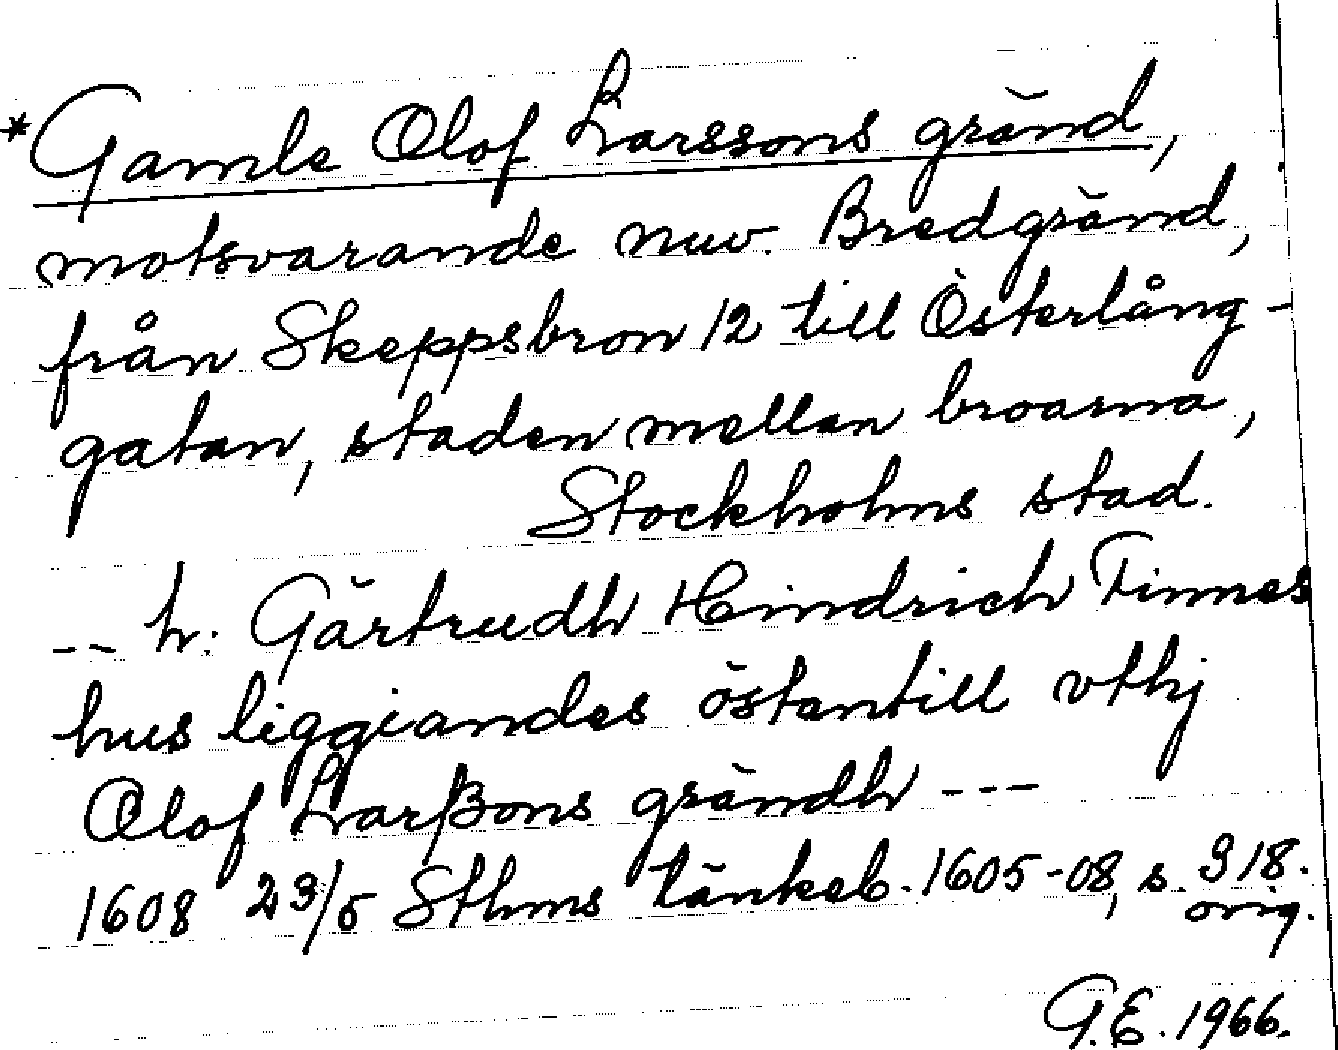 *Gamle Olof Larssons gränd,
motsvarande nuv. Bredgränd,
från Skeppsbron 12 till Österlång-
gatan, staden mellan broarna,
Stockholms stad.
-- h: Gärtrudh Hindrich Finnes
hus liggiandes östantill vthj
Olof Larßons grändh ---
1608 23/5 Sthms tänkeb. 1605-08, s. 318.
orig.
G.E. 1966.